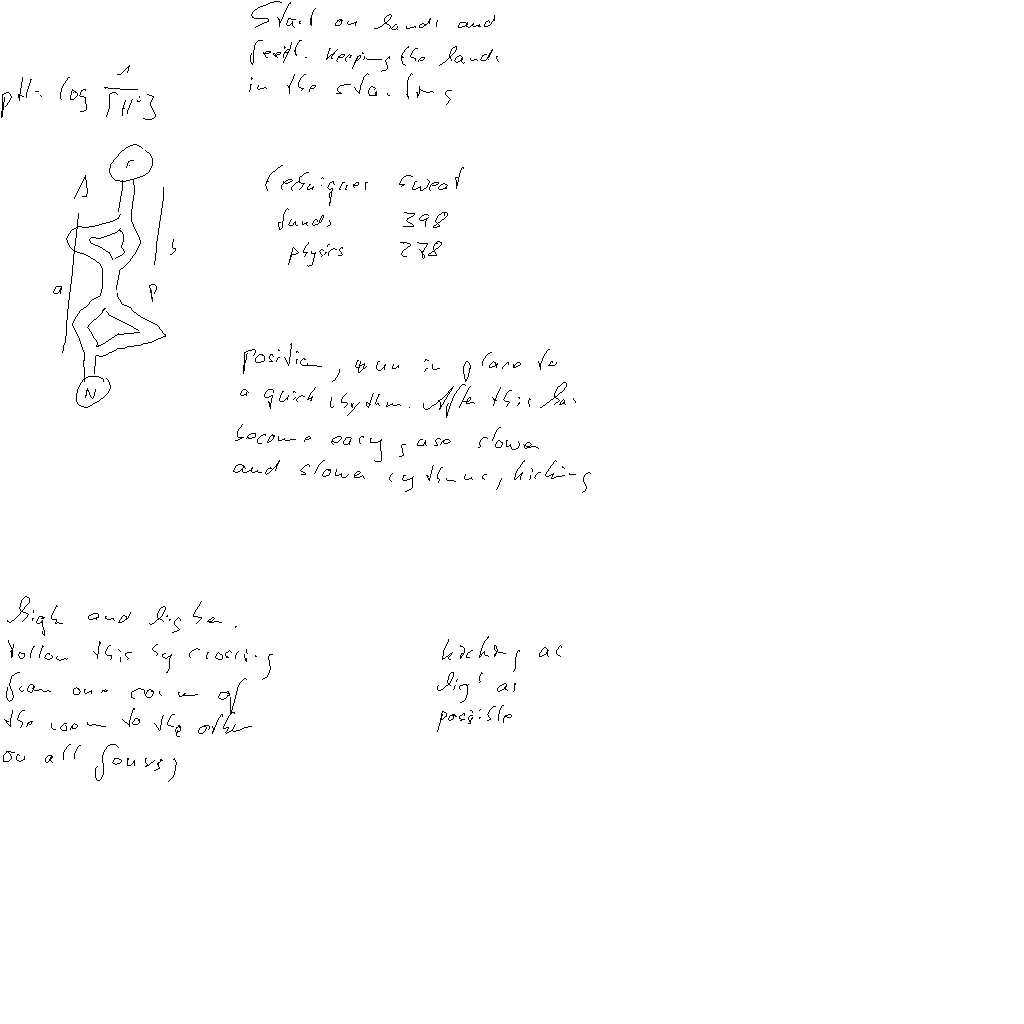 Start on hands and
feet. Keeping the hands
in the starting
pH = log 1/[H+]
F
1
techniques sweat
funds 398
b
physics 278
a
p
position, run in place to
N
a quick rhythm. After this has
become easy, use slower
and slower rythms, kicking
high and higher.
Follow this by crossing
from one room of
the room to the other
on all fours,
kicking as
high as
possible